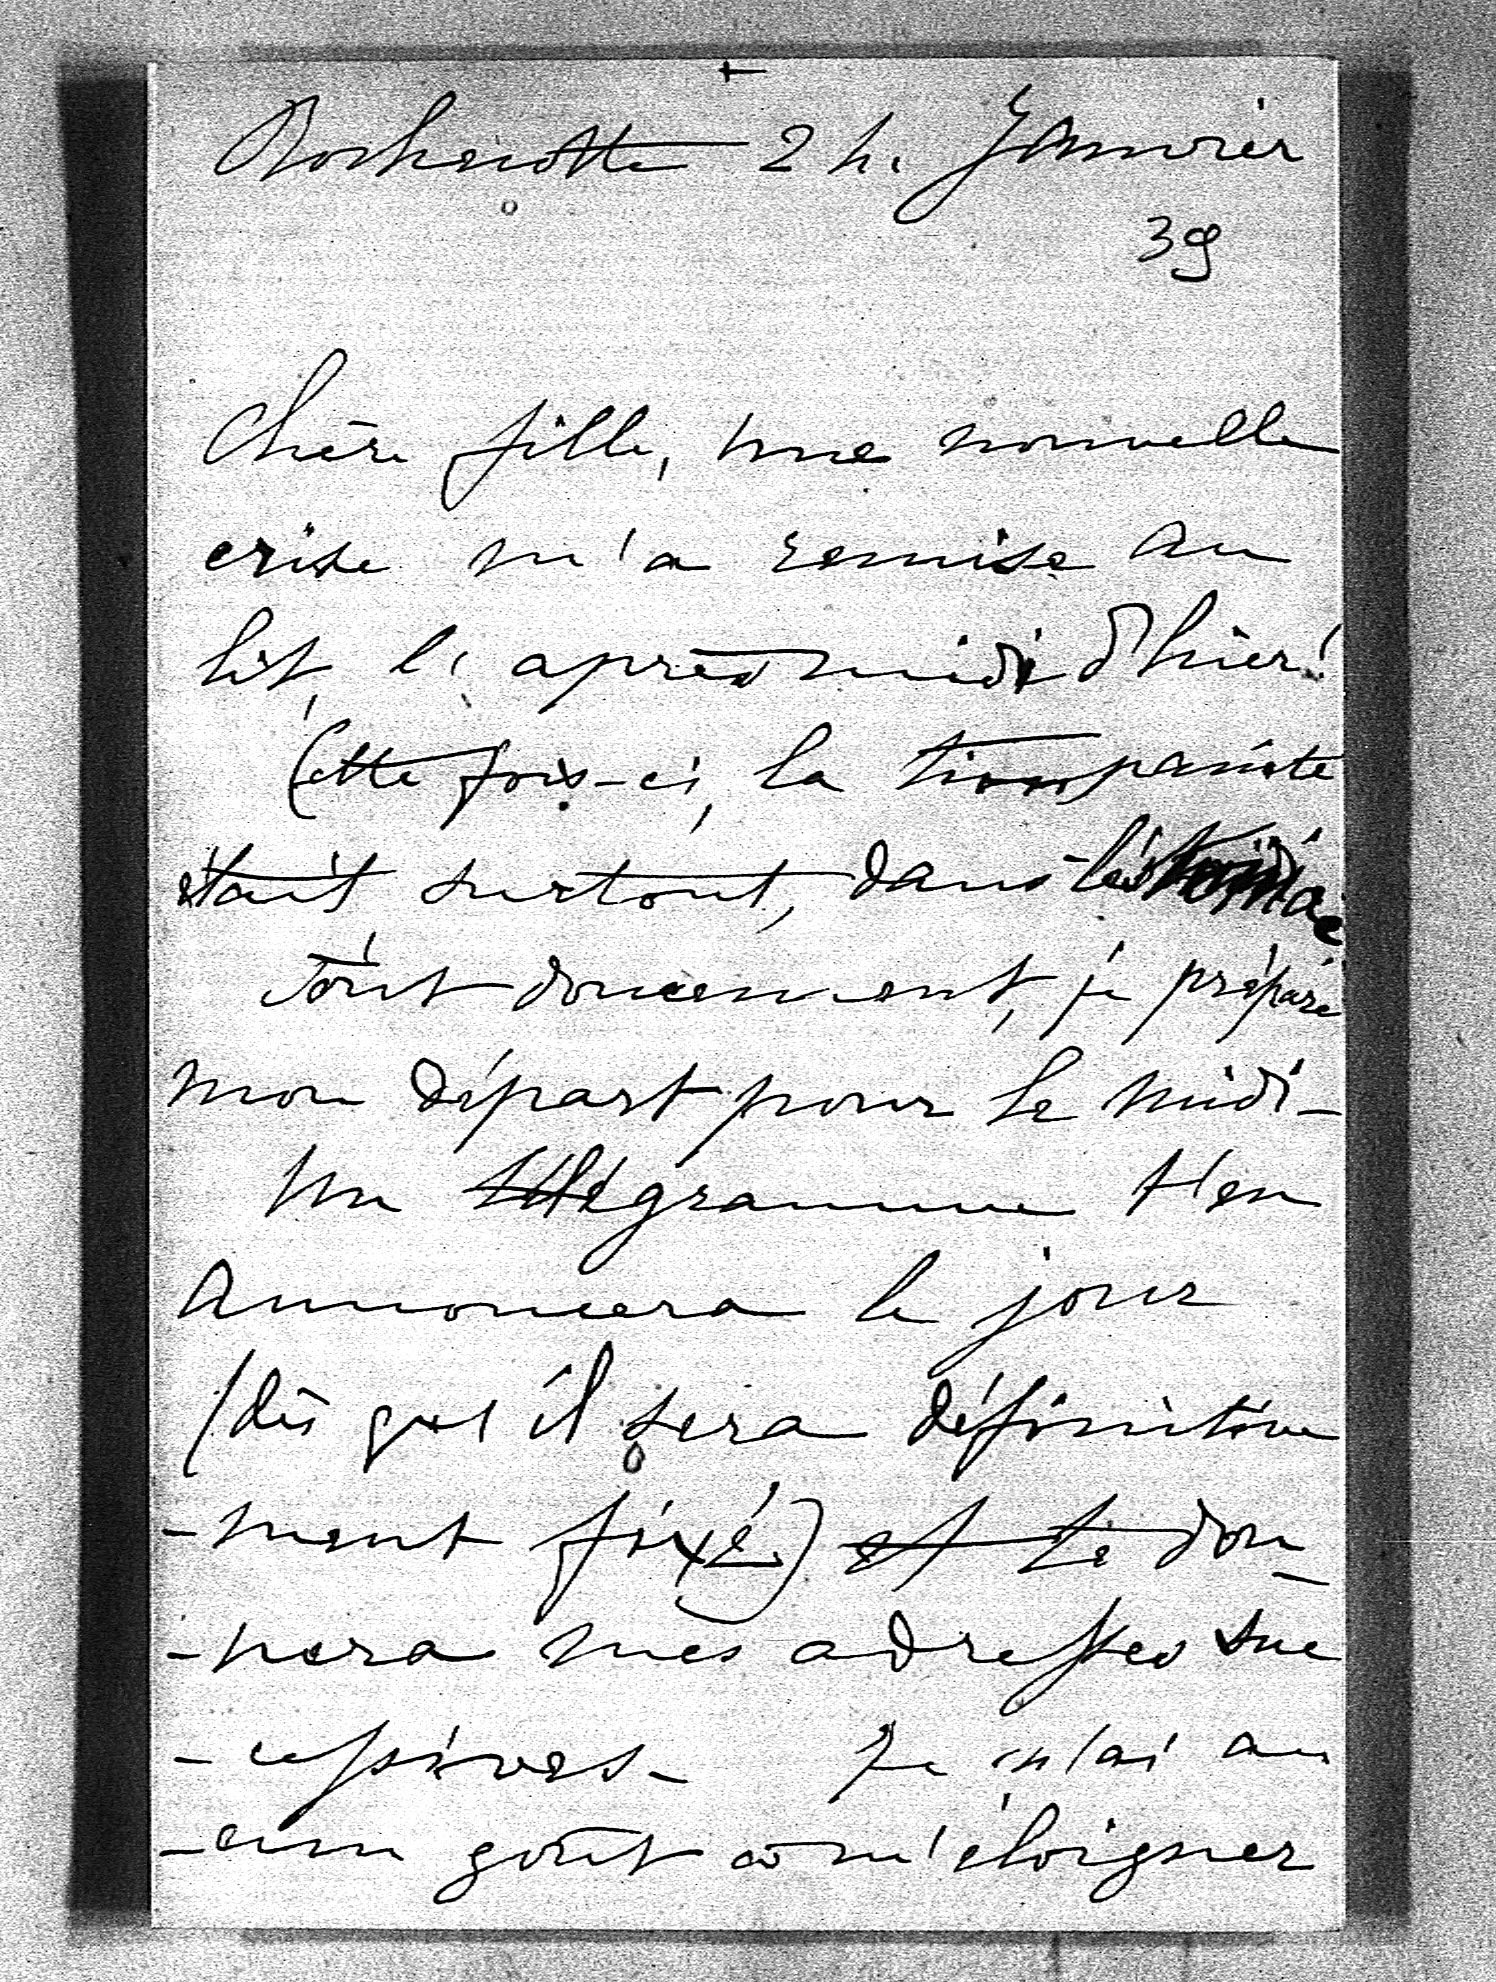 Rochecotte 24. Janvier
39
Chère fille, une nouvelle
crise m'a remise au
lit, l'après midi d'hier!
Cette fois-ci, la timpanite
était surtout, dans l'éstomac
Tout doucement, je prépare
mon départ pour le midi-
Un télégramme t'en
annoncera le jour
(dès qu'il sera définitive
-ment fixé) et te don-
-nera mes adresses suc
-cessives- Je n'ai au
-cun goût à m'éloigner